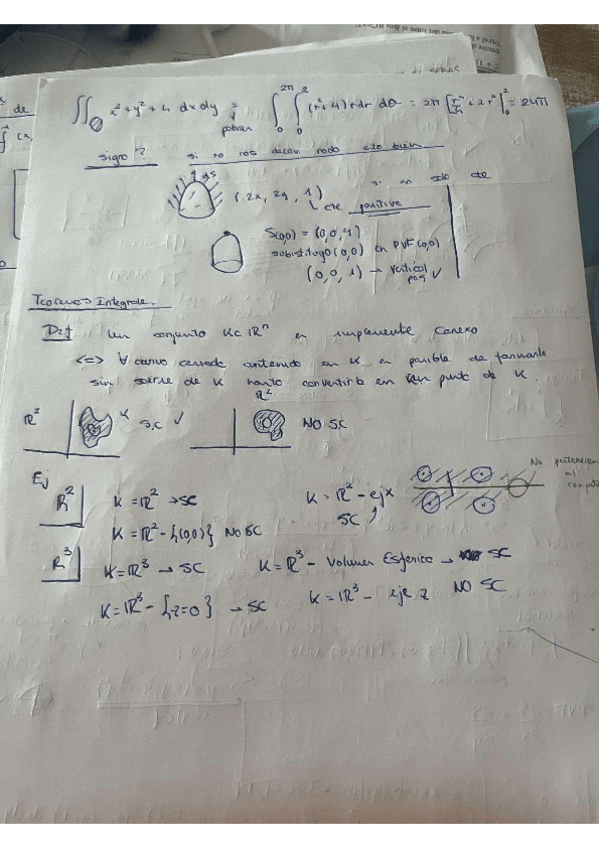 ∬ x²+y²+4 dxdy = ∫₀^2π ∫₀² (r²+4) r dr dθ = 2π [r⁴/4 + 2r²]₀² = 24π
polares
signo? si no nos dicen nada esto bien
(2x, 2y, 1) si no
positivo
S(0,0) = (0,0,4)
substituyo (0,0) en PVF (0,0)
(0,0,1) → vertical pos ✓
Teoremas Integrales.
Def un conjunto K⊂ℝⁿ es simplemente conexo
<=> ∀ curva cerrada contenida en K es posible
sin salirse de K hasta convertirla en un punto de K.
ℝ² K SC ✓ ℝ² NO SC
Ej
ℝ² K = ℝ² → SC K = ℝ² - eje x
SC
No pertenecen al conjunto
K = ℝ² - {(0,0)} NO SC
ℝ³ K = ℝ³ → SC K = ℝ³ - Volumen Esferico → SC
K = ℝ³ - {z=0} → SC K = ℝ³ - eje z NO SC